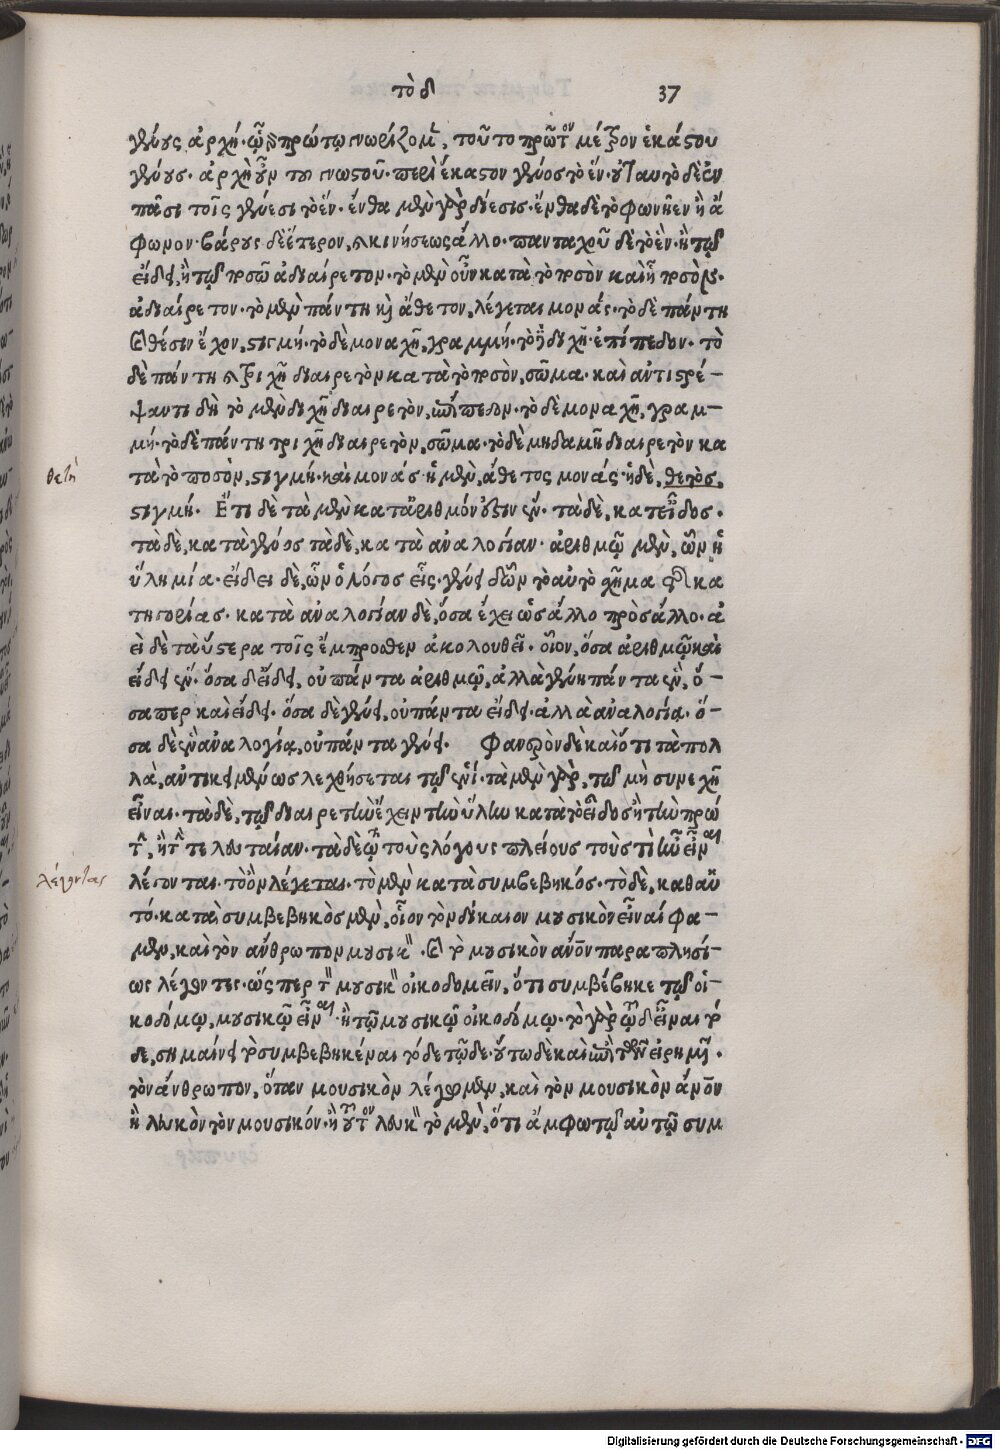 τὸ δ 37
γένους ἀρχή· ᾧ γὰρ πρώτῳ γνωρίζομεν, τοῦτο πρῶτον μέτρον ἑκάστου
γένους· ἀρχὴ οὖν τοῦ γνωστοῦ· περὶ ἕκαστον γένος τὸ ἕν· οὐ ταυτὸ δὲ ἐν
πᾶσι τοῖς γένεσι τὸ ἕν· ἔνθα μὲν γὰρ δίεσις· ἔνθα δὲ τὸ φωνῆεν ἢ ἄ
φωνον· βάρους δὲ ἕτερον, καὶ κινήσεως ἄλλο· πανταχοῦ δὲ τὸ ἓν· ἢ τῷ
εἴδει, ἢ τῷ ποσῷ ἀδιαίρετον· τὸ μὲν οὖν κατὰ τὸ ποσὸν καὶ ᾗ ποσὸν·
ἀδιαίρετον· τὸ μὲν πάντῃ καὶ ἄθετον, λέγεται μονάς· τὸ δὲ πάντῃ
καὶ θέσιν ἔχον, στιγμή· τὸ δὲ μοναχῇ, γραμμή· τὸ δὲ διχῇ· ἐπίπεδον· τὸ
δὲ πάντη καὶ τριχῇ διαιρετὸν κατὰ τὸ ποσὸν, σῶμα· καὶ ἀντιστρέ–
ψαντι δὴ τὸ μὲν διχῇ διαιρετὸν, ἐπίπεδον· τὸ δὲ μοναχῇ, γραμ–
μή· τὸ δὲ πάντη τριχῇ διαιρετὸν, σῶμα· τὸ δὲ μηδαμῇ διαιρετὸν κα
θετὴ
τὰ τὸ ποσὸν, στιγμή· καὶ μονάς· ἡ μὲν, ἄθετος μονάς· ἡ δὲ, θετὸς,
στιγμή. Ἔτι δὲ τὰ μὲν κατ' ἀριθμόν ἐστιν ἕν· τὰ δὲ, κατ' εἶδος·
τὰ δὲ, κατὰ γένος τὰ δὲ, κατὰ ἀναλογίαν· ἀριθμῷ μὲν, ὧν ἡ
ὕλη μία· εἴδει δὲ, ὧν ὁ λόγος εἷς· γένει δ' ὧν τὸ αὐτὸ σχῆμα τῆς κα
τηγορίας· κατὰ ἀναλογίαν δὲ, ὅσα ἔχει ὡς ἄλλο πρὸς ἄλλο· ἀ
εὶ δὲ τὰ ὕστερα τοῖς ἔμπροσθεν ἀκολουθεῖ· οἷον, ὅσα ἀριθμῷ καὶ
εἴδει ἕν· ὅσα δ' εἴδει, οὐ πάντα ἀριθμῷ, ἀλλὰ γένει πάντα ἓν, ὅ–
σα περ καὶ εἴδει· ὅσα δὲ γένει, οὐ πάντα εἴδει· ἀλλὰ ἀναλογίᾳ· ὅ–
σα δὲ ἓν ἀναλογίᾳ, οὐ πάντα γένει. Φανερὸν δὲ καὶ ὅτι τὰ πολ
λὰ, ἀντικειμένως λεχθήσεται τῷ ἑνί· τὰ μὲν γὰρ, τῷ μὴ συνεχῆ
εἶναι· τὰ δὲ, τῷ διαιρετὴν ἔχειν τὴν ὕλην κατὰ τὸ εἶδος ἢ τὴν πρώ
την, ἢ τὴν τελευταίαν· τὰ δὲ ᾧ τοὺς λόγους πλείους τοὺς τί ἦν εἶναι
λέγοντας
λέγονται. τὸ ὂν λέγεται, τὸ μὲν κατὰ συμβεβηκός· τὸ δὲ, καθ' αὑ
τό· κατὰ συμβεβηκὸς μὲν, οἷον τὸν δίκαιον μουσικὸν εἶναί φα–
μεν, καὶ τὸν ἄνθρωπον μουσικὸν· καὶ τὸν μουσικὸν ἄνθρωπον παραπλησί–
ως λέγοντες· ὥσπερ τὸν μουσικὸν οἰκοδομεῖν, ὅτι συμβέβηκε τῷ οἰ–
κοδόμῳ, μουσικῷ εἶναι· ἢ τῷ μουσικῷ οἰκοδόμῳ· τὸ γὰρ τόδ' εἶναι τό
δε, σημαίνει τὸ συμβεβηκέναι τόδε τῷδε· οὕτω δὲ καὶ ἐπὶ τῶν εἰρημένων·
τὸν ἄνθρωπον, ὅταν μουσικὸν λέγωμεν, καὶ τὸν μουσικὸν ἄνθρωπον
ἢ λευκὸν τὸν μουσικόν· ἢ τοῦτον λευκὸν τὸ μὲν, ὅτι ἄμφω τῷ αὐτῷ συμ
Digitalisierung gefördert durch die Deutsche Forschungsgemeinschaft - DFG